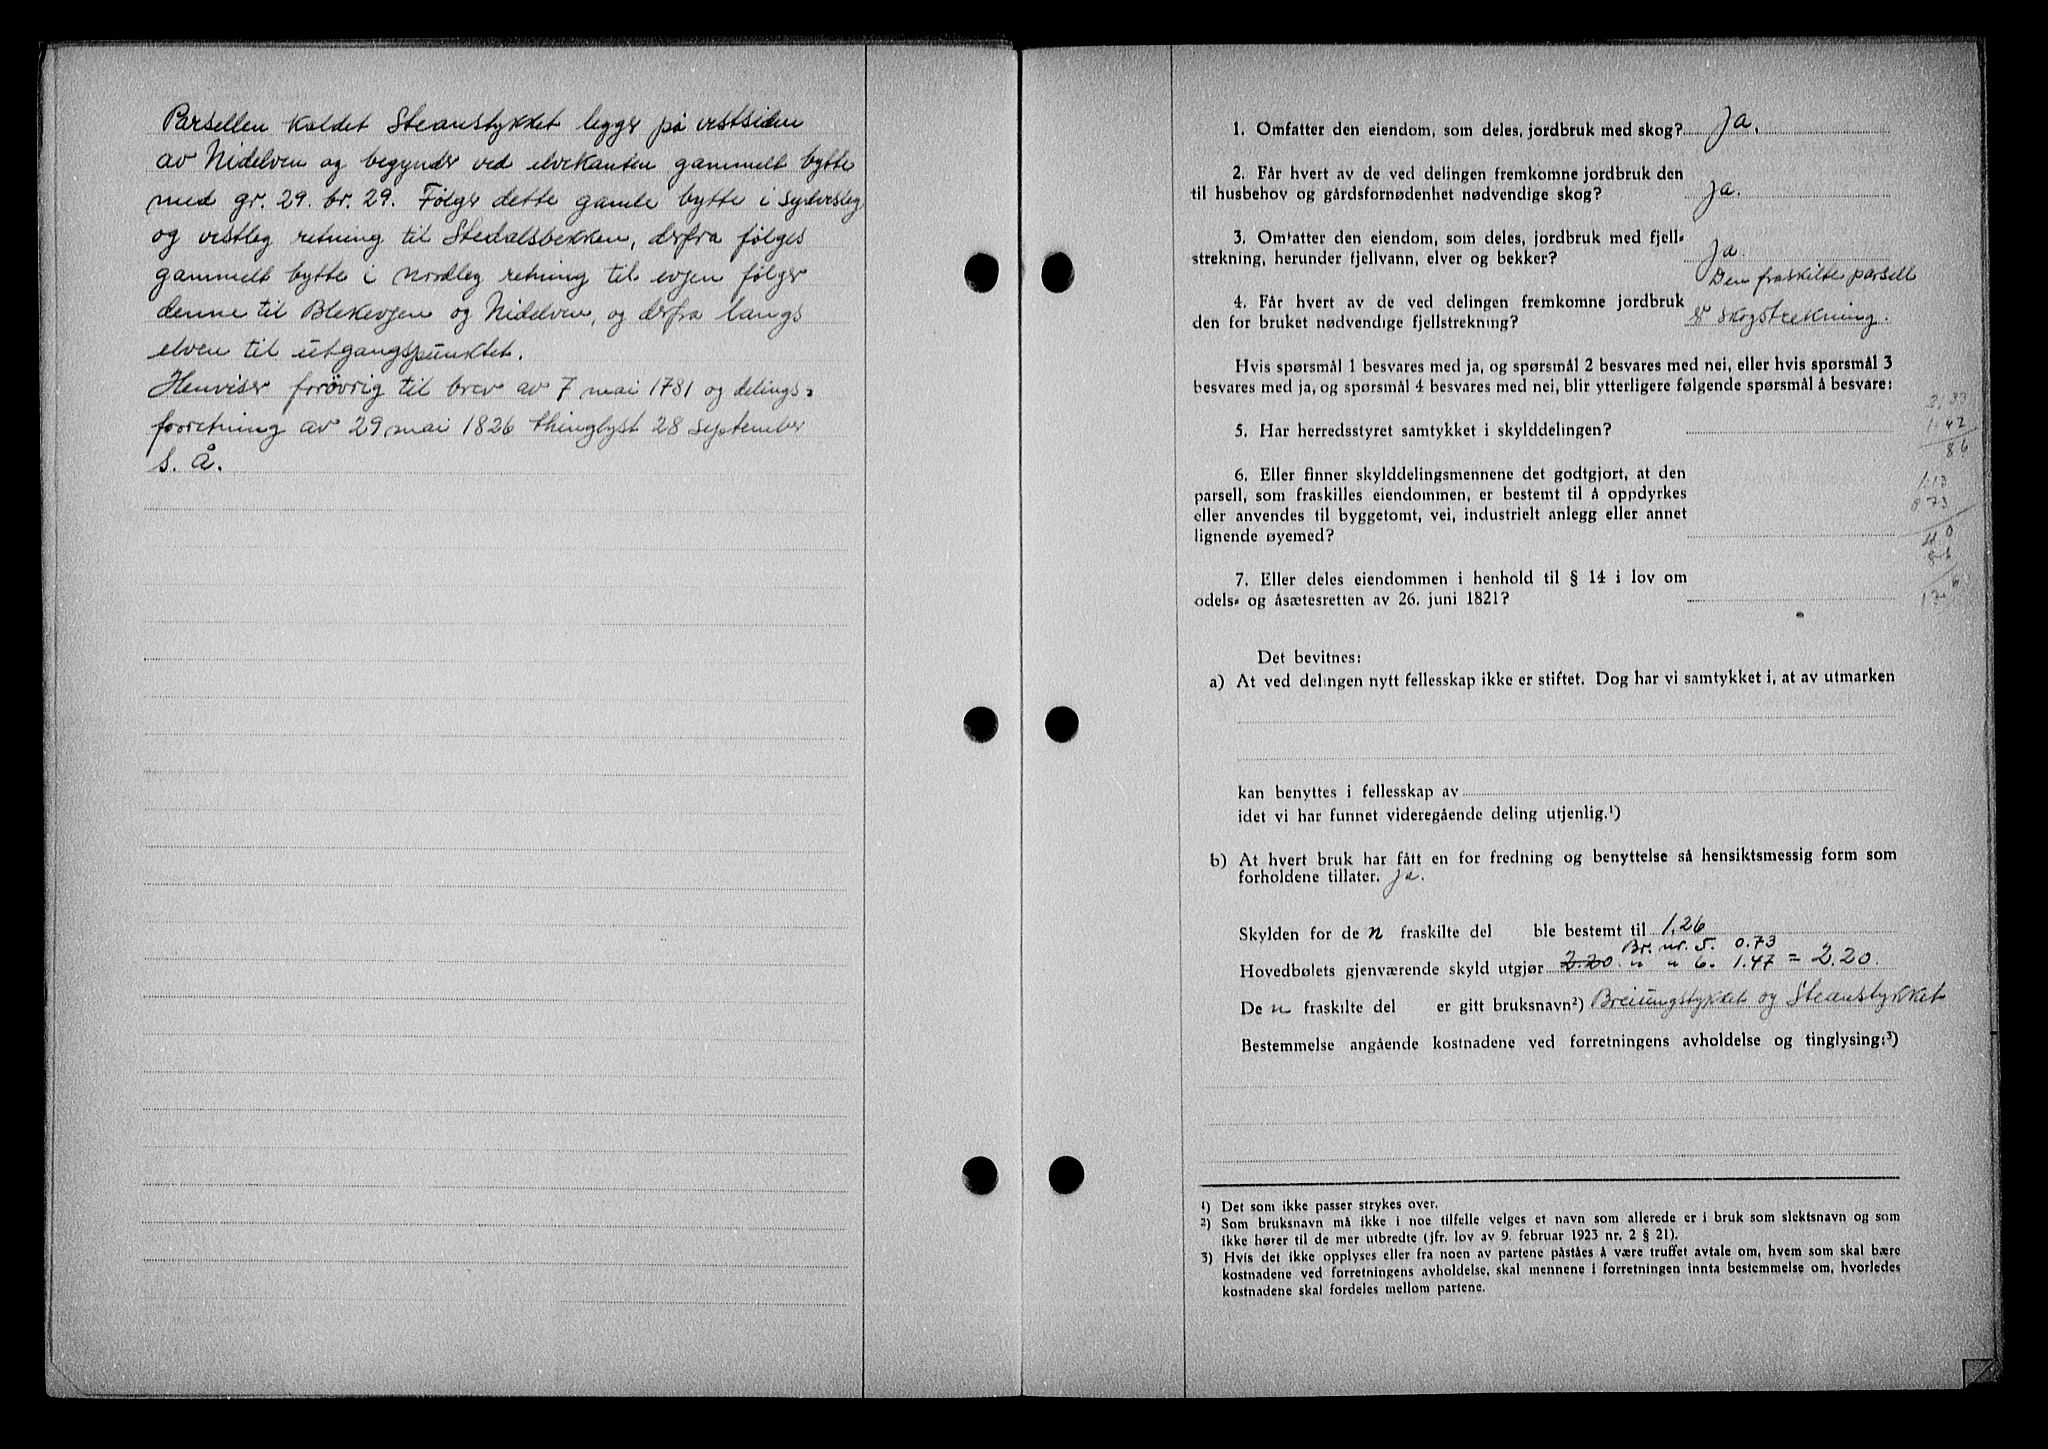 Parsellen kaldet Steanstykket legger på vestsiden
av Nidelven og begynder ved elvekanten gammelt bytte
med gr. 29. br. 29. Følger dette gamle bytte i sydvestleg
og vestleg retning til Stedalsbekken, derfra følges
gammelt bytte i nordleg retning til evjen følger
denne til Blekevjen og Nidelven, og derfra langs
elven til utgangspunktet.
Henviser forøvrig til brev av 7 mai 1781 og delings-
forretning av 29 mai 1826 thinglyst 28 september
s. å.
1. Omfatter den eiendom, som deles, jordbruk med skog? Ja.
2. Får hvert av de ved delingen fremkomne jordbruk den
til husbehov og gårdsfornødenhet nødvendige skog? Ja.
3. Omfatter den eiendom, som deles, jordbruk med fjell-
strekning, herunder fjellvann, elver og bekker? Ja.
Den fraskilte parsell
4. Får hvert av de ved delingen fremkomne jordbruk
den for bruket nødvendige fjellstrekning? er skogstrekning.
Hvis spørsmål 1 besvares med ja, og spørsmål 2 besvares med nei, eller hvis spørsmål 3
besvares med ja, og spørsmål 4 besvares med nei, blir ytterligere følgende spørsmål å besvare:
5. Har herredsstyret samtykket i skylddelingen?
6. Eller finner skylddelingsmennene det godtgjort, at den
parsell, som fraskilles eiendommen, er bestemt til å oppdyrkes
eller anvendes til byggetomt, vei, industrielt anlegg eller annet
lignende øyemed?
7. Eller deles eiendommen i henhold til § 14 i lov om
odels- og åsætesretten av 26. juni 1821?
86
1.13
0.73
40
Det bevitnes:
a) At ved delingen nytt fellesskap ikke er stiftet. Dog har vi samtykket i, at av utmarken
kan benyttes i fellesskap av
idet vi har funnet videregående deling utjenlig.¹)
b) At hvert bruk har fått en for fredning og benyttelse så hensiktsmessig form som
forholdene tillater. Ja.
Skylden for de n fraskilte del ble bestemt til 1.26
Br. nr. 5. 0.73
Hovedbølets gjenværende skyld utgjør 2.20 " " 6. 1.47 = 2.20.
De n fraskilte del er gitt bruksnavn²) Breiungstykket og Steanstykket
Bestemmelse angående kostnadene ved forretningens avholdelse og tinglysing:³)
¹) Det som ikke passer strykes over.
²) Som bruksnavn må ikke i noe tilfelle velges et navn som allerede er i bruk som slektsnavn og som
ikke hører til de mer utbredte (jfr. lov av 9. februar 1923 nr. 2 § 21).
3) Hvis det ikke opplyses eller fra noen av partene påståes å være truffet avtale om, hvem som skal bære
kostnadene ved forretningens avholdelse, skal mennene i forretningen innta bestemmelse om, hvorledes
kostnadene skal fordeles mellom partene.